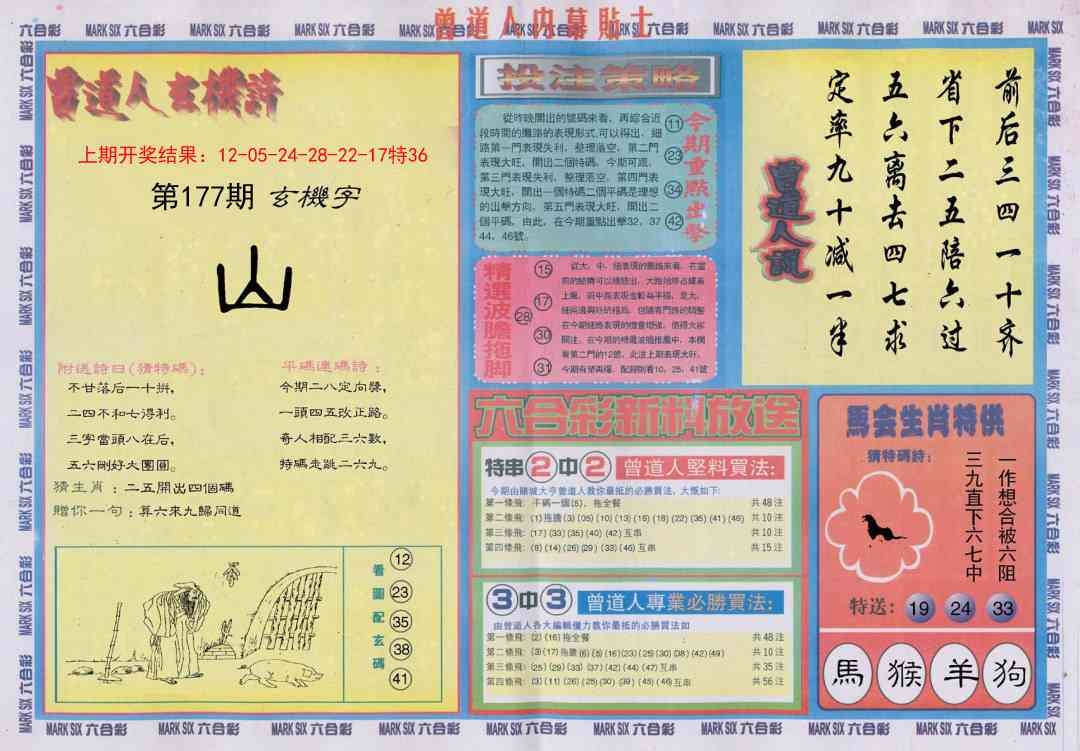 曾道人内幕貼士
MARK SIX 六合彩
曾道人玄機詩
上期开奖结果：12-05-24-28-22-17特36
第177期 玄機字
山
附送詩曰(猜特碼)：
不甘落后一十拼，
二四不和七得利。
三字當頭八在后，
五六剛好大團圓。
猜生肖：二五開出四個碼
贈你一句：算六來九歸同道
平碼連碼詩：
今期二八定向獎，
一頭四五改正路。
奇人相配三六數，
特碼走跳二六九。
看圖配玄碼
12
23
35
38
41
投注策略
從昨晚開出的號碼來看，再綜合近
段時間的攤路的表現形式，可以得出，細
路第一門表現失利，整理落空，第二門
表現大旺，開出二個特碼，今期可跟，
第三門表現失利，整理落空，第四門表
現大旺，開出一個特碼二個平碼是理想
的出擊方向，第五門表現大旺，開出二
個平碼，由此，在今期重點出擊32、37
44、46號。
11
23
34
42
今期重點出擊
精選波膽拖脚
15
17
28
30
31
六合彩新料放送
特串2中2 曾道人堅料買法：
今期由賭城大亨曾道人教你最抵的必勝買法，大慨如下：
第一條飛：平碼一個(5)，拖全餐 共48注
第二條飛：(1)拖膽(3)(05)(10)(13)(16)(18)(22)(35)(41)(46) 共10注
第三條飛：(17)(33)(35)(40)(42)互串 共10注
第四條飛：(8)(14)(26)(29)(33)(46)互串 共15注
3中3 曾道人專業必勝買法：
由曾道人各大編輯優力教你最抵的必勝買法如
第一條飛：(2)(16)拖全餐 共48注
第二條飛：(3)(17)拖膽(6)(8)(16)(23)(25)(30)(38)(42)(49) 共10注
第三條飛：(25)(29)(33)(37)(42)(44)(47)互串 共35注
第四條飛：(3)(11)(26)(25)(30)(39)(45)(46)互串 共56注
前后三四一十齐
省下二五陪六过
五六离去四七求
定率九十减一半
曾道人訊
馬会生肖特供
猜特碼詩：
一作想合被六阻
三九直下六七中
特送：19 24 33
馬 猴 羊 狗
MARK SIX 六合彩